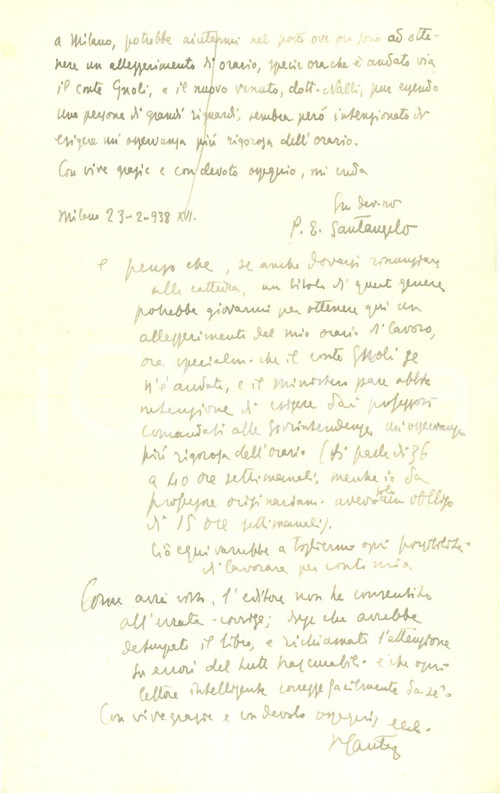 a Milano, potrebbe aiutarmi nel posto ove ora sono ad otte-
nere un alleggerimento di orario, specie ora che è andato via
il conte Gnoli, e il nuovo venuto, dott. Nalli, pur essendo
una persona di grandi riguardi, sembra però intenzionato di
esigere un'osservanza più rigorosa dell'orario.
Con vive grazie e con devoto ossequio, mi creda
Milano 23-2-938 XVI.
Suo dev.mo
P. E. Santangelo
e penso che, se anche dovessi rinunziare
alla cattedra, un titolo di quel genere
potrebbe giovarmi per ottenere qui un
alleggerimento del mio orario di lavoro,
ora specialm. che il conte Gnoli se
n'è andato, e il Ministero pare abbia
intenzione di esigere dai professori
comandati alle Sovrintendenze un'osservanza
più rigorosa dell'orario (si parla di 36
a 40 ore settimanali, mentre io da
professore originariam. avevo solo obbligo
di 15 ore settimanali).
Ciò equivarrebbe a togliermi ogni possibilità
di lavorare per conto mio
Come avrà visto, l'editore non ha consentito
all'errata-corrige; dice che avrebbe
deturpato il libro, e richiamato l'attenzione
su errori del tutto trascurabili e che ogni
lettore intelligente corregge facilmente da sé.
Con vive grazie e con devoto ossequio,